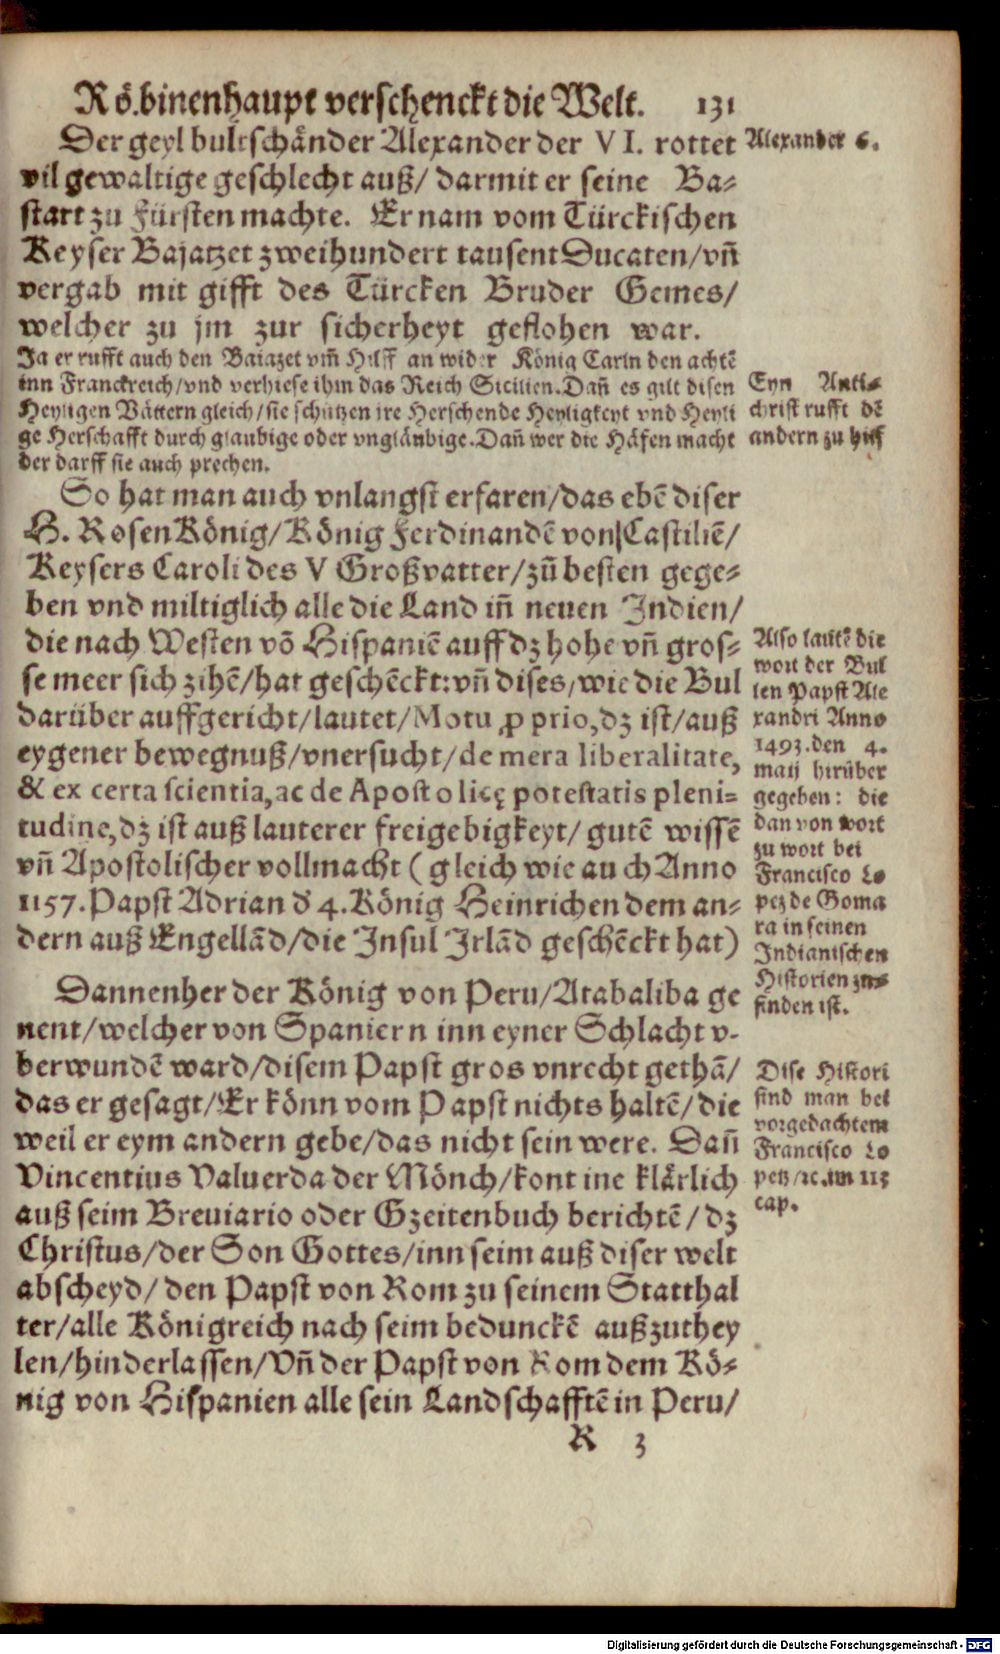 Rö.binenhaupt verschenckt die Welt. 131
Der geyl bultschänder Alexander der VI. rottet
vil gewaltige geschlecht auß/ darmit er seine Ba-
start zu Fürsten machte. Er nam vom Türckischen
Keyser Bajatzet zweihundert tausent Ducaten/vñ
vergab mit gifft des Türcken Bruder Gemes/
welcher zu jm zur sicherheyt geflohen war.
Ja er rufft auch den Baiazet vm̃ Hilff an wider König Carln den achtẽ
inn Franckreich/vnd verhiese ihm das Reich Sicilien. Dañ es gilt disen
Heyligen Vättern gleich/sie schützen jre Herschende Heyligkeyt vnd Heyli
ge Herschafft durch glaubige oder vngläubige. Dañ wer die Häfen macht
der darff sie auch prechen.
So hat man auch vnlangst erfaren/das ebẽ diser
H. RosenKönig/König Ferdinandẽ von Castiliẽ/
Keysers Caroli des V Großvatter/zũ besten gege-
ben vnd miltiglich alle die Land iñ neuen Indien/
die nach Westen võ Hispaniẽ auff dz hohe vñ gros-
se meer sich zihẽ/hat geschẽckt: vñ dises/wie die Bul
darüber auffgericht/lautet/Motu ꝓprio, dz ist/auß
eygener bewegnuß/vnersucht/de mera liberalitate,
& ex certa scientia, ac de Apostolicę potestatis pleni-
tudine, dz ist auß lauterer freigebigkeyt/ gutẽ wissẽ
vñ Apostolischer vollmacht (gleich wie auch Anno
1157. Papst Adrian d' 4. König Heinrichen dem an-
dern auß Engellãd/die Insul Irlãd geschẽckt hat)
Dannenher der König von Peru/Atabaliba ge
nent/welcher von Spaniern inn eyner Schlacht v-
berwundẽ ward/disem Papst gros vnrecht gethã/
das er gesagt/Er könn vom Papst nichts haltẽ/die
weil er eym andern gebe/das nicht sein were. Dañ
Vincentius Valuerda der Mönch/kont ine klärlich
auß seim Breuiario oder Gzeitenbuch berichtẽ/dz
Christus/der Son Gottes/inn seim auß diser welt
abscheyd/ den Papst von Rom zu seinem Statthal
ter/alle Königreich nach seim beduncke᷃ außzuthey
len/hinderlassen/Vñ der Papst von Rom dem Kö-
nig von Hispanien alle sein Landschafftẽ in Peru/
R 3
Alexander 6.
Eyn Anti-
christ rufft dẽ
andern zu hilf
Also lautẽ die
wort der Bul
len Papst Ale
xandri Anno
1493. den 4.
maij hirüber
gegeben: die
dan von wort
zu wort bei
Francisco Lo
pez de Goma
ra in seinen
Indianischen
Historien zu-
finden ist.
Dise Histori
find man bei
vorgedachtem
Francisco Lo
petz/ꝛc. im 113
cap.
Digitalisierung gefördert durch die Deutsche Forschungsgemeinschaft - DFG